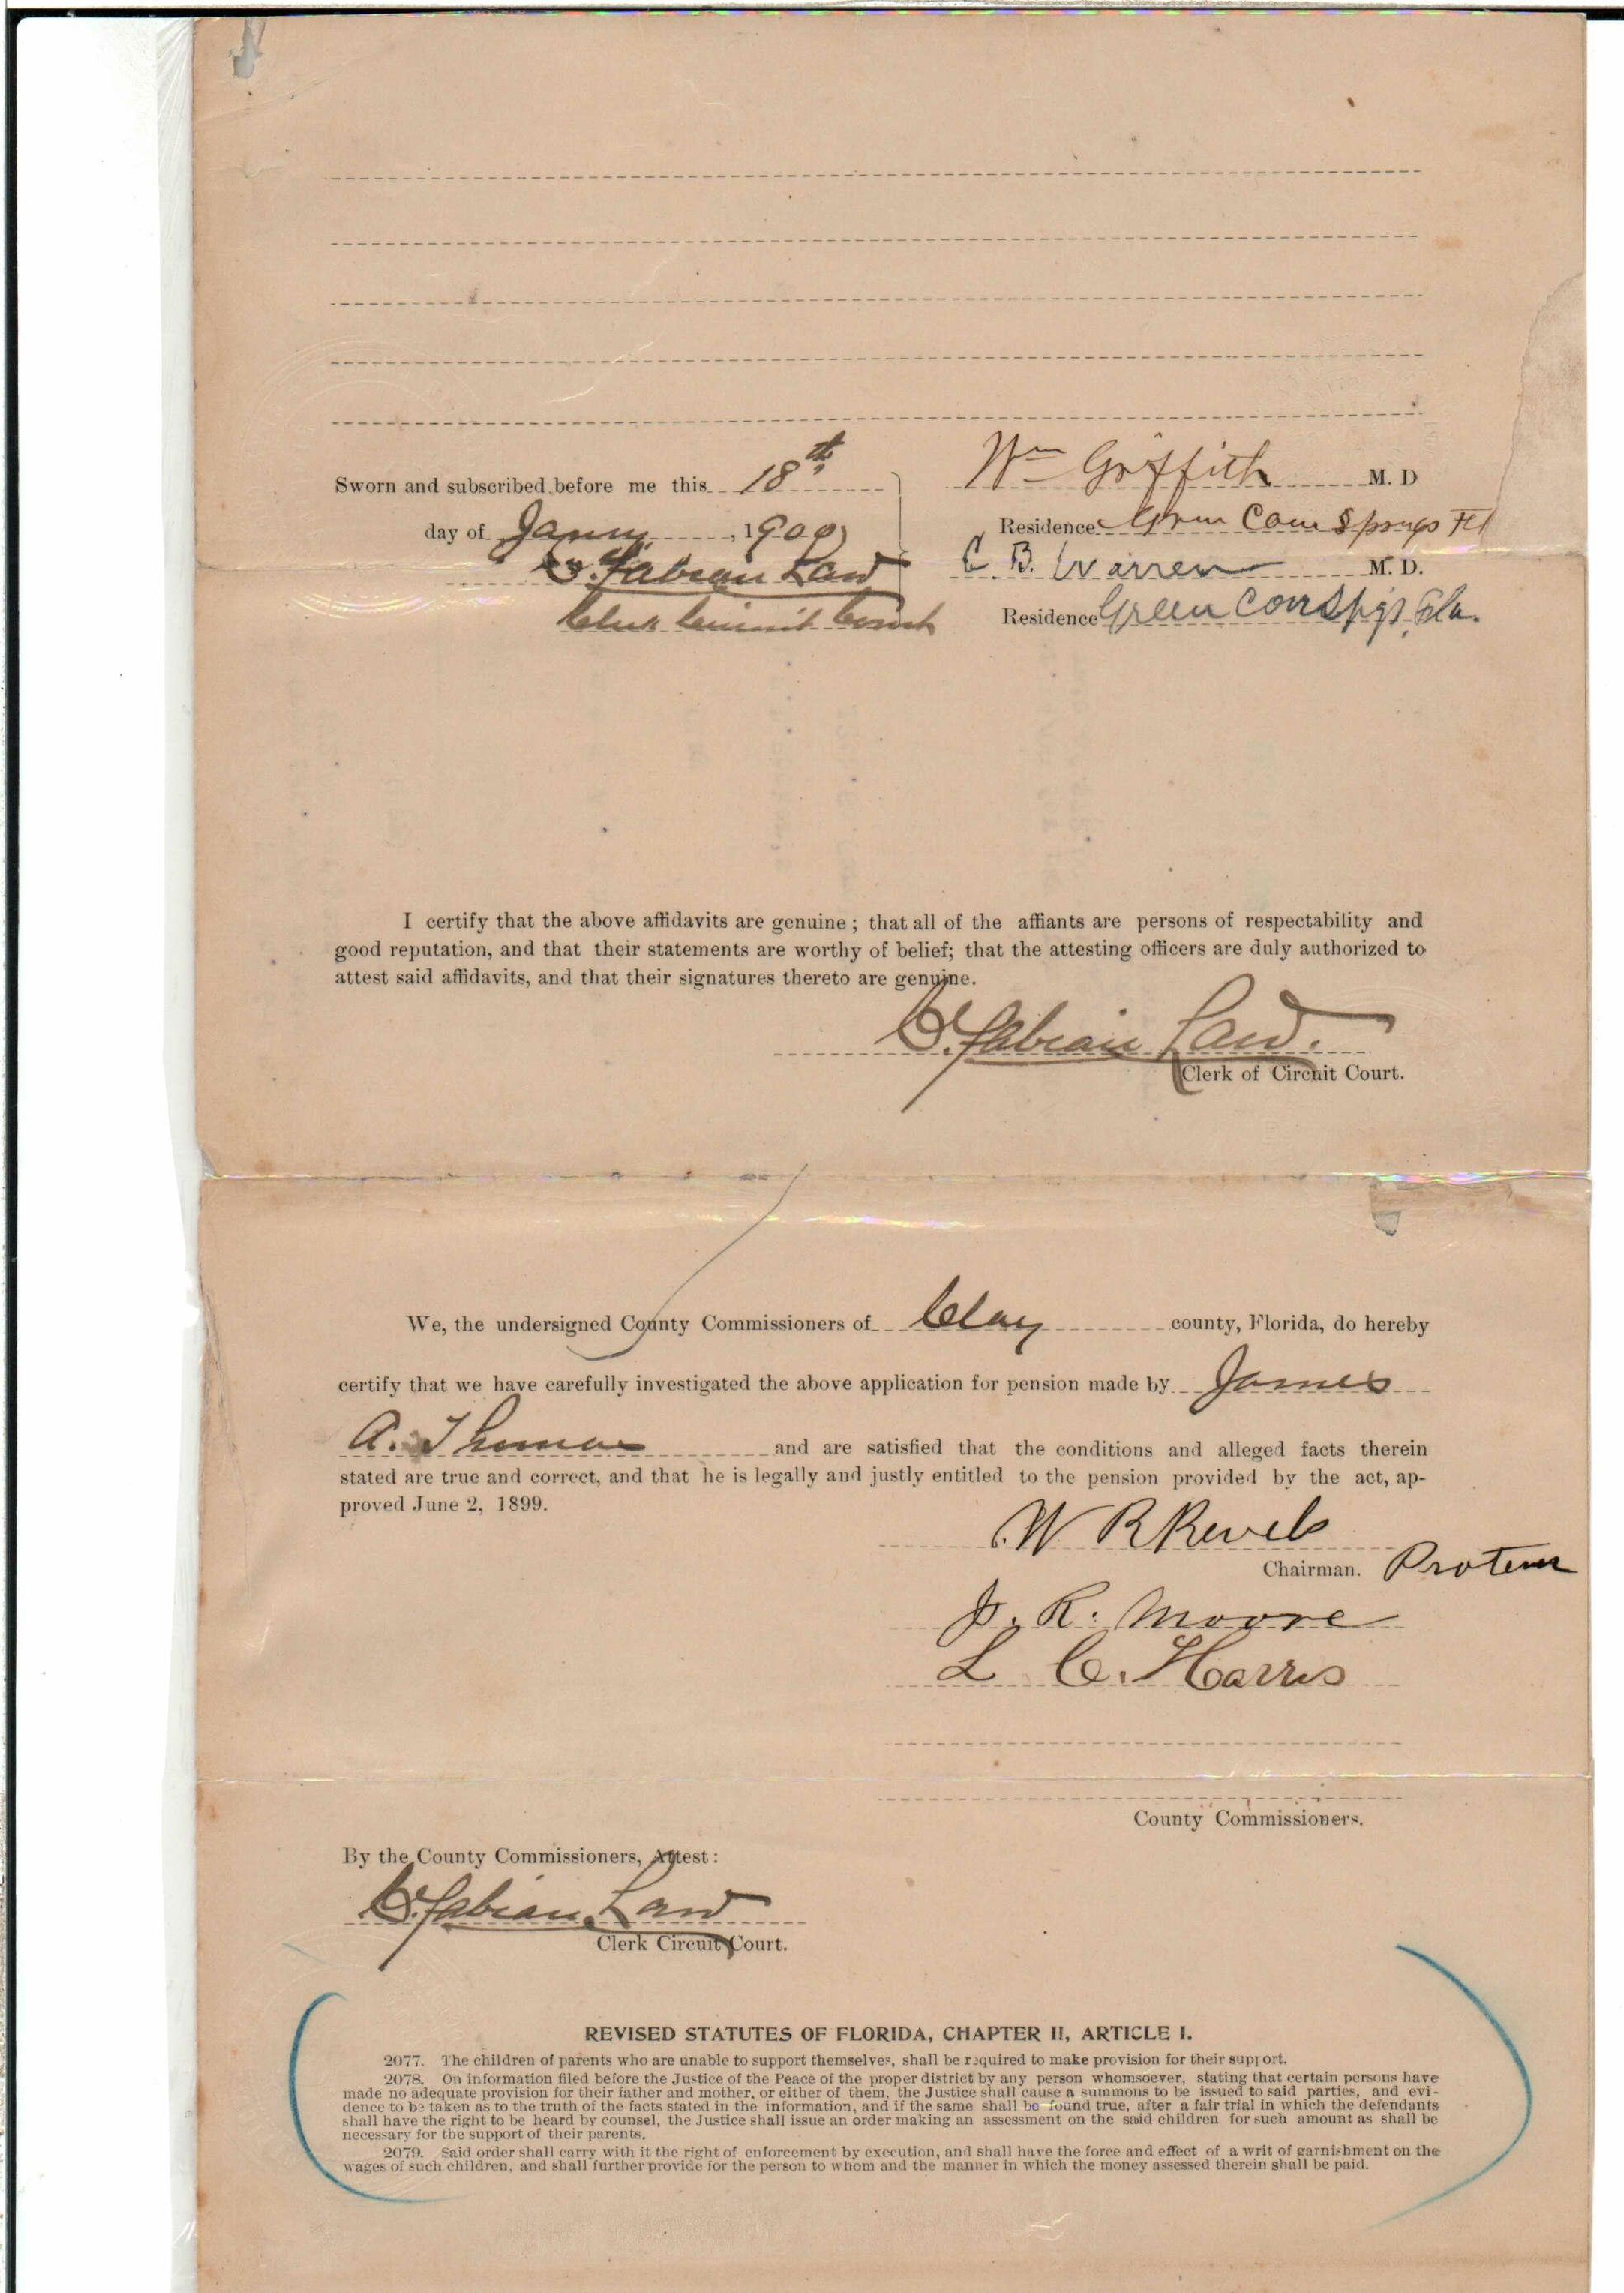 Sworn and subscribed before me this 18th
day of Jany, 1900
C. Fabian Law
Clerk Circuit Court
Wm Griffith M. D
Residence Green Cove Springs Fl
C B. Warren M. D.
Residence Green Cove Spgs, Fla.
I certify that the above affidavits are genuine; that all of the affiants are persons of respectability and
good reputation, and that their statements are worthy of belief; that the attesting officers are duly authorized to
attest said affidavits, and that their signatures thereto are genuine.
C. Fabian Law.
Clerk of Circuit Court.
We, the undersigned County Commissioners of Clay county, Florida, do hereby
certify that we have carefully investigated the above application for pension made by James
A. Thomas and are satisfied that the conditions and alleged facts therein
stated are true and correct, and that he is legally and justly entitled to the pension provided by the act, ap-
proved June 2, 1899.
W R Revels
Chairman. Protem
J. R. Moore
L C. Harris
County Commissioners.
By the County Commissioners, Attest:
C. Fabian Law
Clerk Circuit Court.
REVISED STATUTES OF FLORIDA, CHAPTER II, ARTICLE I.
2077. The children of parents who are unable to support themselves, shall be required to make provision for their support.
2078. On information filed before the Justice of the Peace of the proper district by any person whomsoever, stating that certain persons have
made no adequate provision for their father and mother, or either of them, the Justice shall cause a summons to be issued to said parties, and evi-
dence to be taken as to the truth of the facts stated in the information, and if the same shall be found true, after a fair trial in which the defendants
shall have the right to be heard by counsel, the Justice shall issue an order making an assessment on the said children for such amount as shall be
necessary for the support of their parents.
2079. Said order shall carry with it the right of enforcement by execution, and shall have the force and effect of a writ of garnishment on the
wages of such children, and shall further provide for the person to whom and the manner in which the money assessed therein shall be paid.